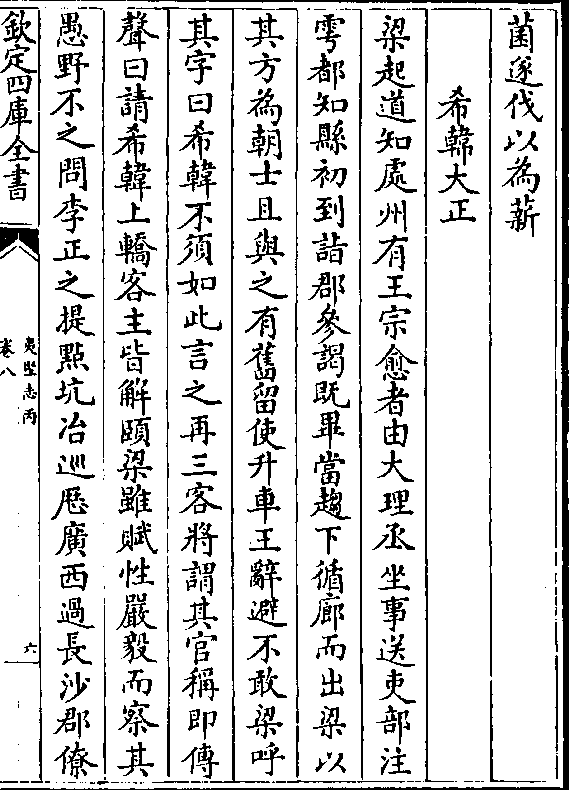 菌遂伐以為薪
希韓大正
梁起道知處州有王宗愈者由大理丞坐事送吏部注
雩都知縣初到詣郡參謁既畢當趨下循廊而出梁以
其方為朝士且與之有舊留使升車王辭避不敢梁呼
其字曰希韓不須如此言之再三客將謂其官稱即傳
聲曰請希韓上轎客主皆解頤梁雖賦性嚴毅而察其
愚野不之問李正之提點坑冶巡歷廣西過長沙郡僚
欽定四庫全書
夷堅志丙
卷八
六